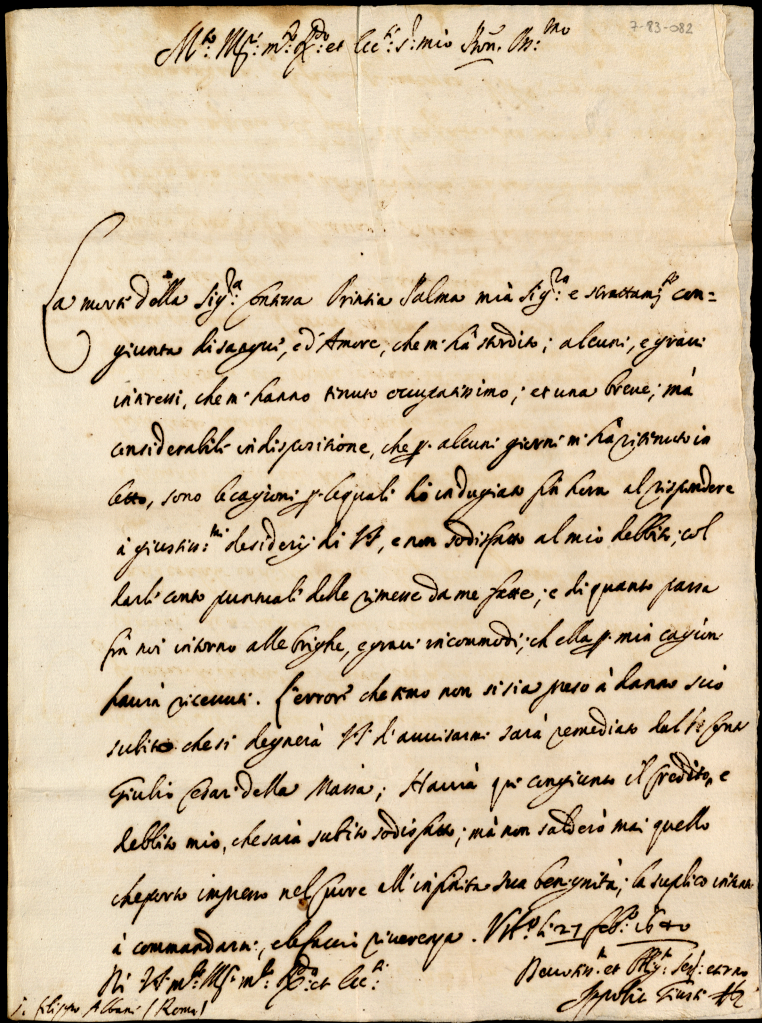 7-83-082
La morte della Sig.ra Contessa Printia Palma mia Sig.ra e strettam.te con=
giunta di sangue, e d'Amore, che m'hà stordito; alcuni, e gravi
interessi, che m'hanno tenuto occupatissimo; et una breve, mà
considerabile indispositione, che p. alcuni giorni m'hà ritenuto in
letto, sono le cagioni p. le quali hò indugiato fin hora al rispondere
à giustiss.mi desiderij di VS, e non sodisfatto al mio debbito, col
darli conto puntuale delle rimesse da me fatte; e di quanto passa
frà noi intorno alle brighe, e gravi incommodi, ch'ella p. mia cagion
havrà ricevuti. L'errore che temo non si sia preso à danno suo
subito che si degnerà VS d'avvisarmi sarà remediato dal S.r Conte
Giulio Cesare della Massa; Havrà qui congiunto il Credito, e
debbito mio, che sarà subito sodisfatto; mà non salderò mai quello
che porto impresso nel Cuore all'infinita sua benignità; la suplico intanto
à commandarmi, e le faccio riverenza. li 27 feb.o 1640
Di VS m.to Ill.e m.to R.do et Ecc.te
Devotiss.o et Oblig. Ser. eterno
S. Filippo Albani (Roma)
Ippolito Giusti